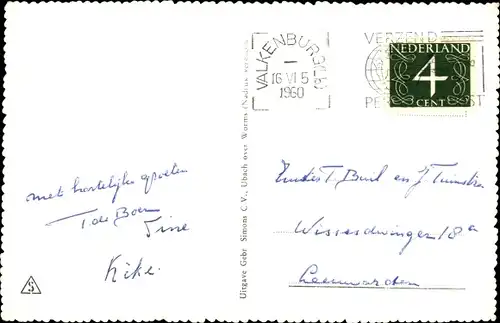 VALKENBURG (LB)
16 VI 5
1960
VERZEND
PE ST
NEDERLAND
4
CENT
met hartelijke groeten
T de Boer
Tine
Kike.
S
Uitgave Gebr Simons C.V., Ubach over Worms (Nadruk verboden)
T. Buil en J Tuinstra
18a
Leeuwarden